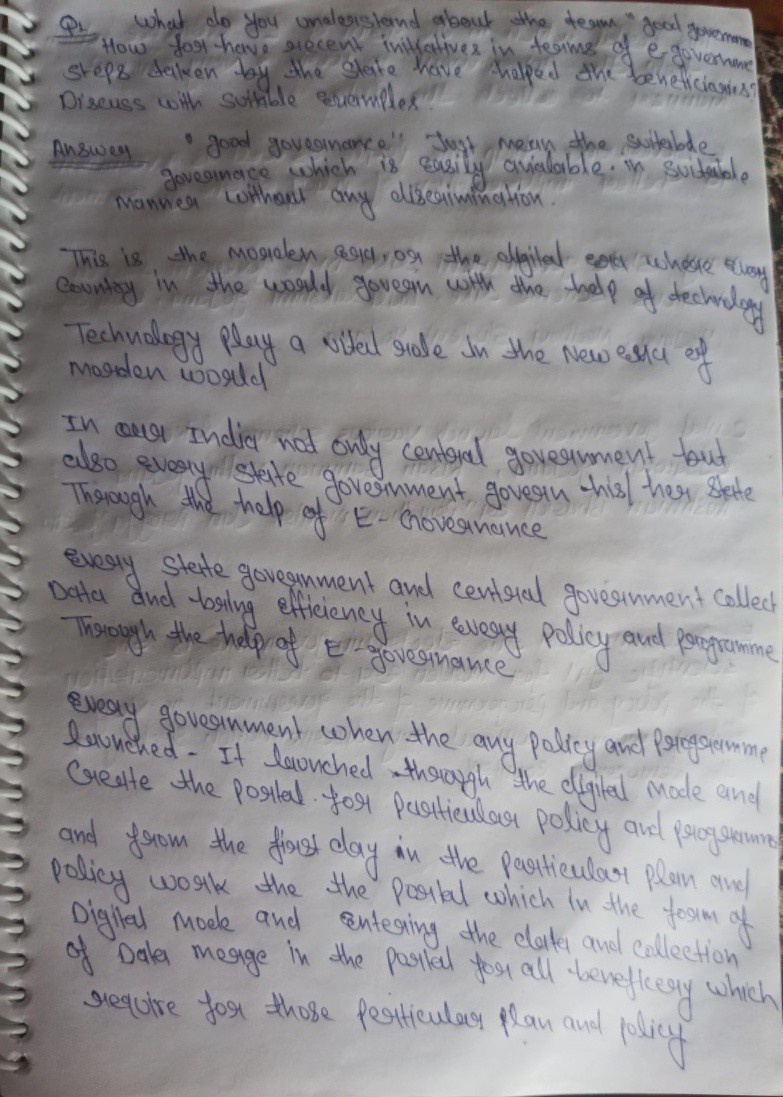 Q1. What do you understand about the term "good governance
How for have recent initiatives in terms of e-governme
steps taken by the state have helped the beneficiaries?
Discuss with suitable examples.
Answer "good governance" Just mean the suitable
governace which is easily avialable in suitable
manner without any discrimination.
This is the morden era, or the digital era where every
Country in the world govern with the help of technology
Technology play a vital role in the New era of
morden world
In our India not only central government but
also every state government govern his/her state
Through the help of E-Governance
Every state government and central government collect
Data and bring efficiency in every policy and programme
Through the help of E-governance
Every government when the any policy and programme
launched - It launched through the digital mode and
Create the portal for particular policy and programme
and from the first day in the particular plan and
policy work the the portal which in the form of
Digital mode and entering the data and collection
of Data merge in the portal for all beneficery which
require for those perticular plan and policy